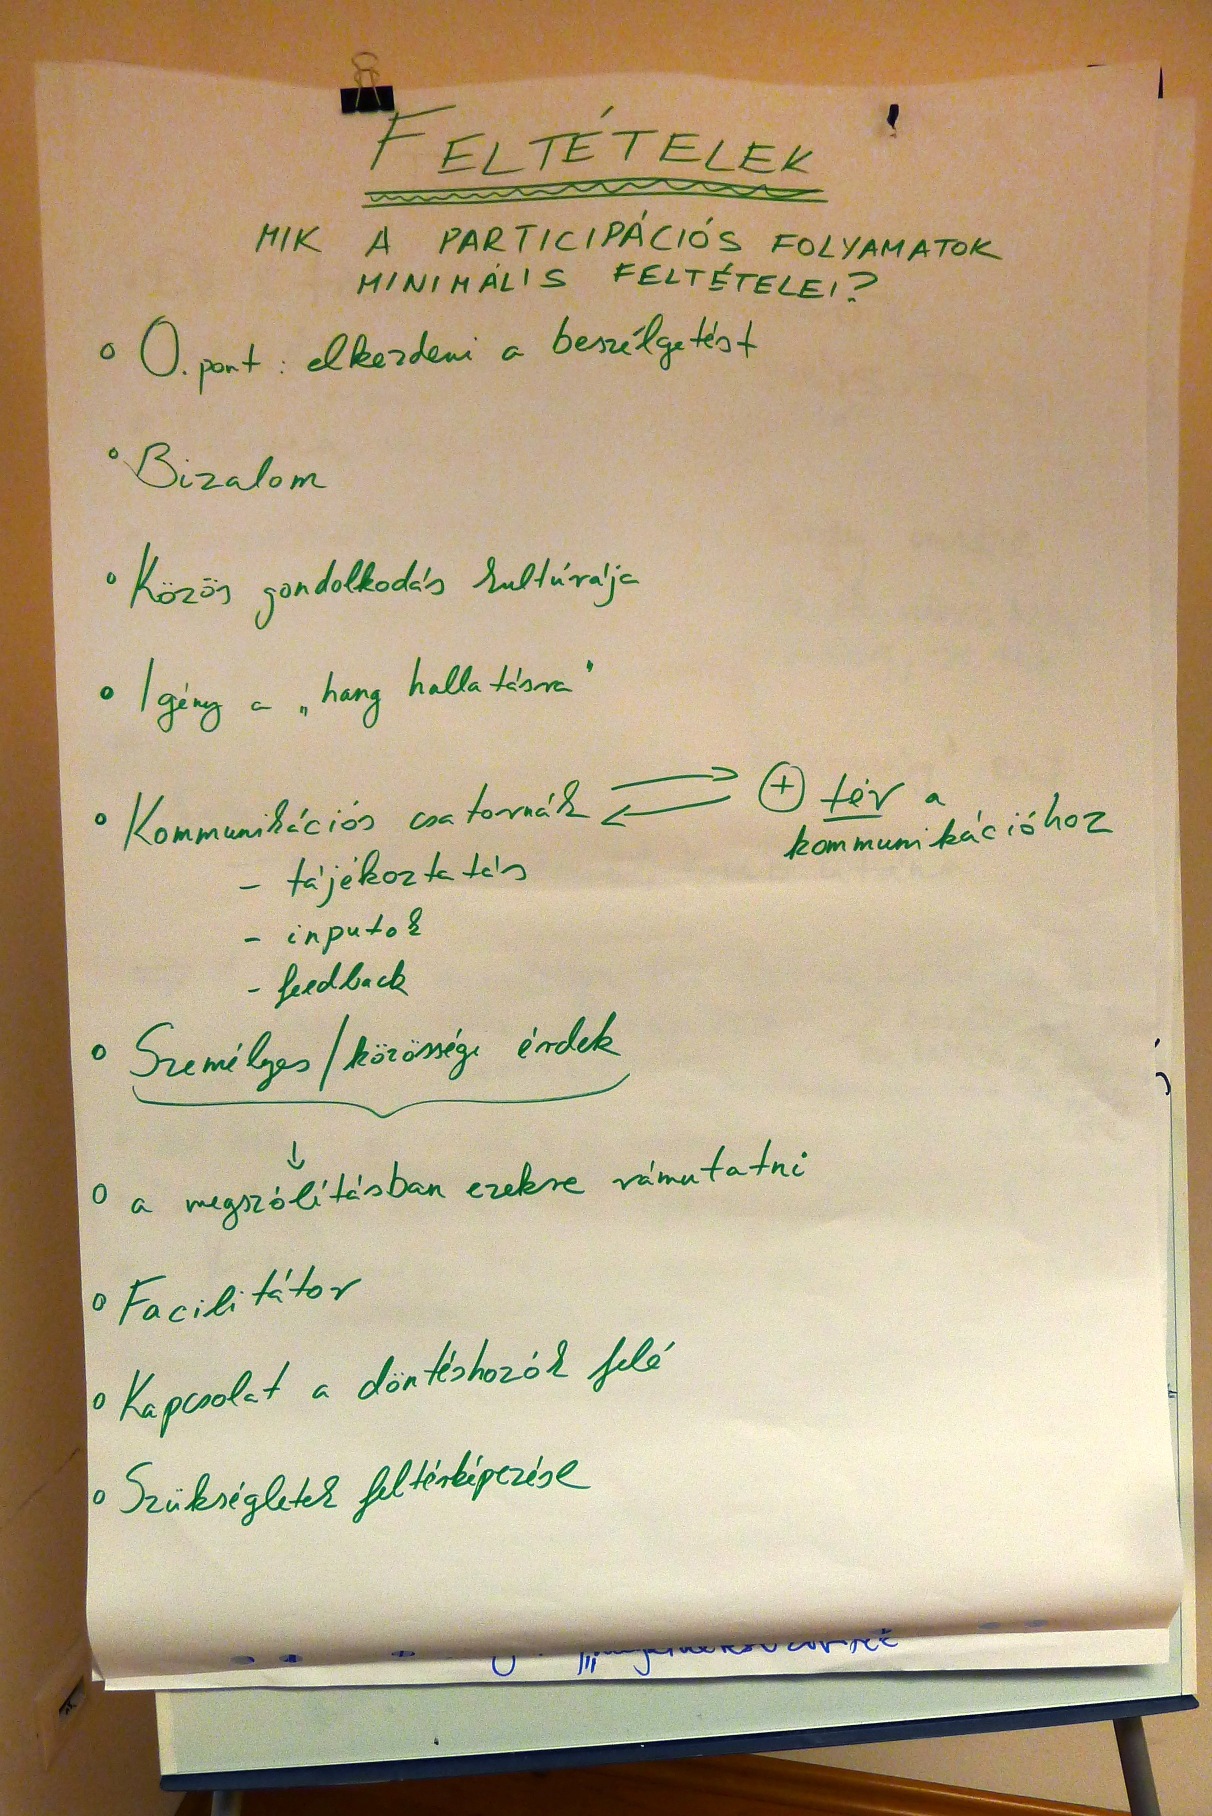 FELTÉTELEK
MIK A PARTICIPÁCIÓS FOLYAMATOK
MINIMÁLIS FELTÉTELEI?
0. pont : elkezdeni a beszélgetést
Bizalom
Közös gondolkodás kultúrája
Igény a „hang hallatásra"
Kommunikációs csatornák ⇄ ⊕ tér a
kommunikációhoz
- tájékoztatás
- inputok
- feedback
Személyes/közösségi érdek
↓
a megszólításban ezekre rámutatni
Facilitátor
Kapcsolat a döntéshozók felé
Szükségletek feltérképezése